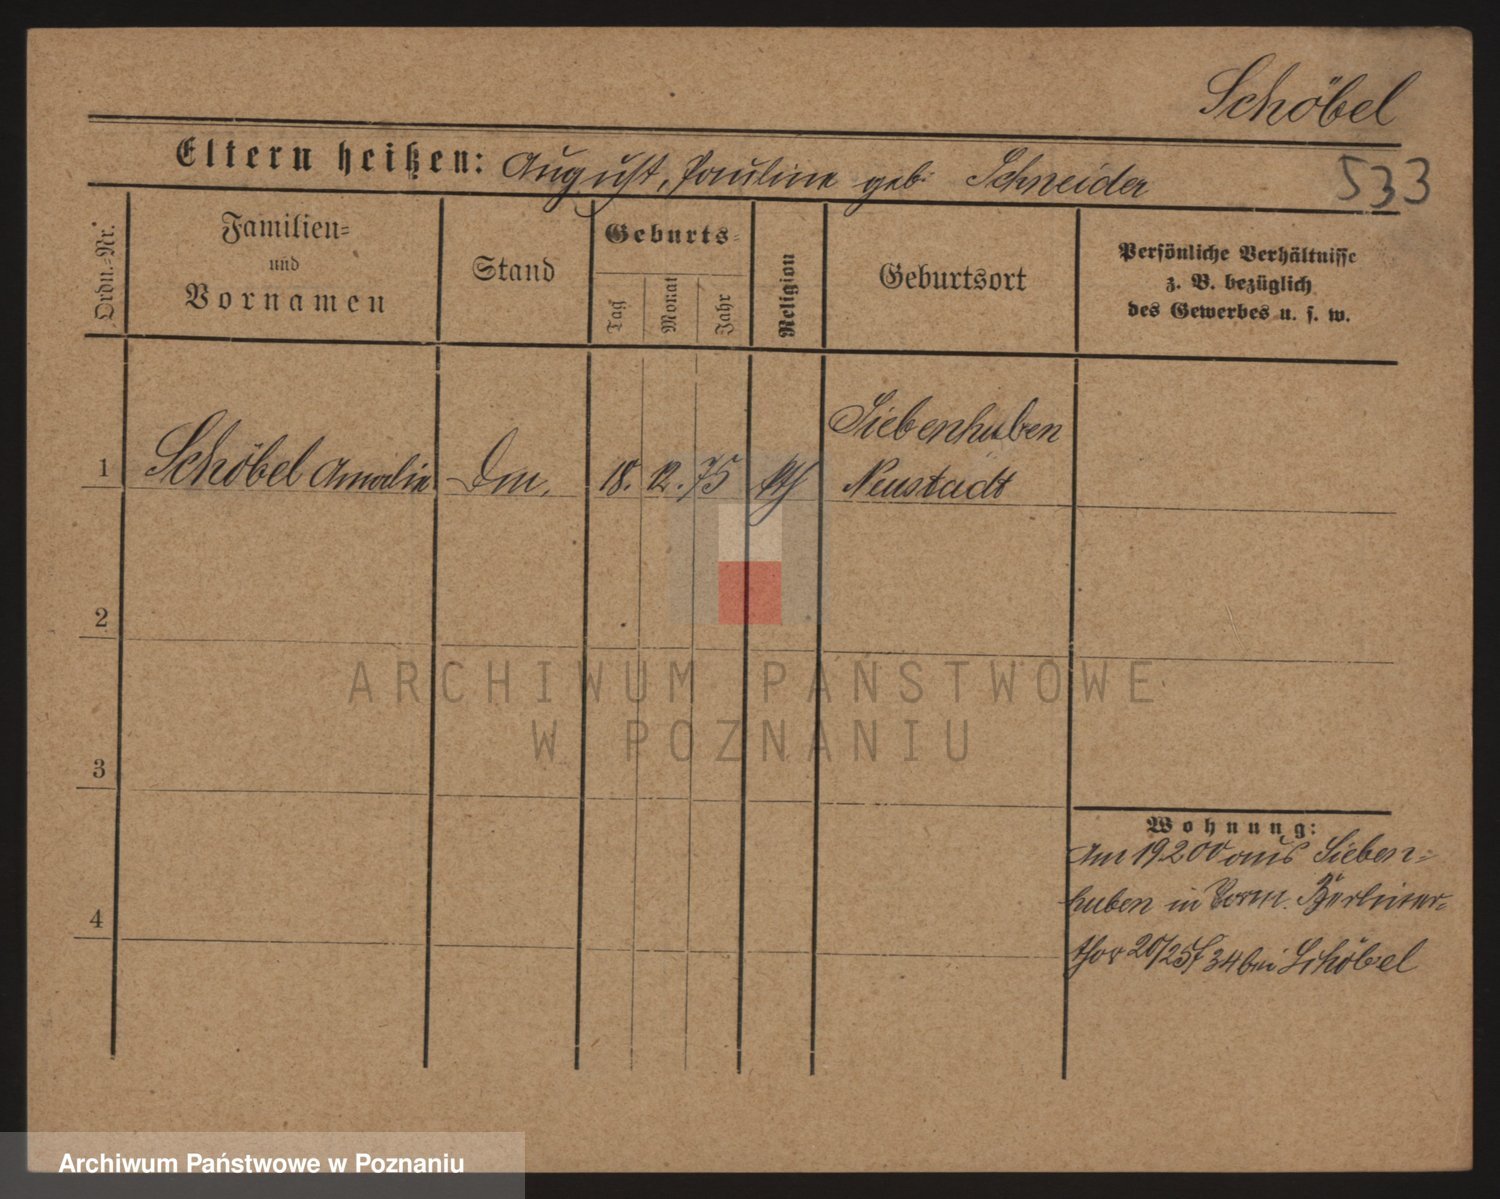 Schöbel
Eltern heißen: August, Pauline geb. Schneider
533
Ordn.-Nr.
Familien-
und
Vornamen
Stand
Geburts-
Tag
Monat
Jahr
Religion
Geburtsort
Persönliche Verhältnisse
z. B. bezüglich
des Gewerbes u. s. w.
Siebenhuben
1 Schöbel Amalie 18. 12. 75 Neustadt
2
ARCHIWUM PAŃSTWOWE
W POZNANIU
3
Wohnung:
Am 19200 aus Sieben-
huben in Berliner-
4
thor 20/25 34 bei Schöbel
Archiwum Państwowe w Poznaniu